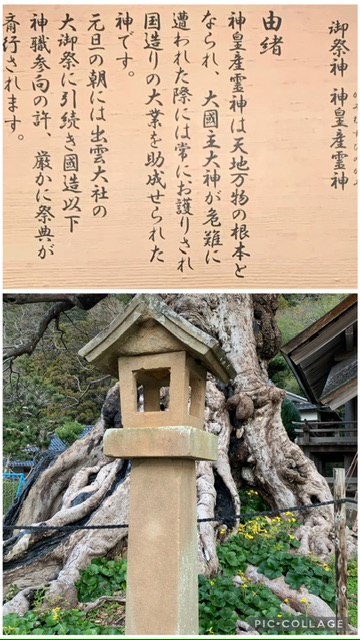 御祭神 神皇産霊神
由緒
神皇産霊神は天地万物の根本と
なられ、大國主大神が危難に
遭われた際には常にお護りされ
国造りの大業を助成せられた
神です。
元旦の朝には出雲大社の
大御祭に引続き國造以下
神職参向の許、厳かに祭典が
斎行されます。
PIC・COLLAGE